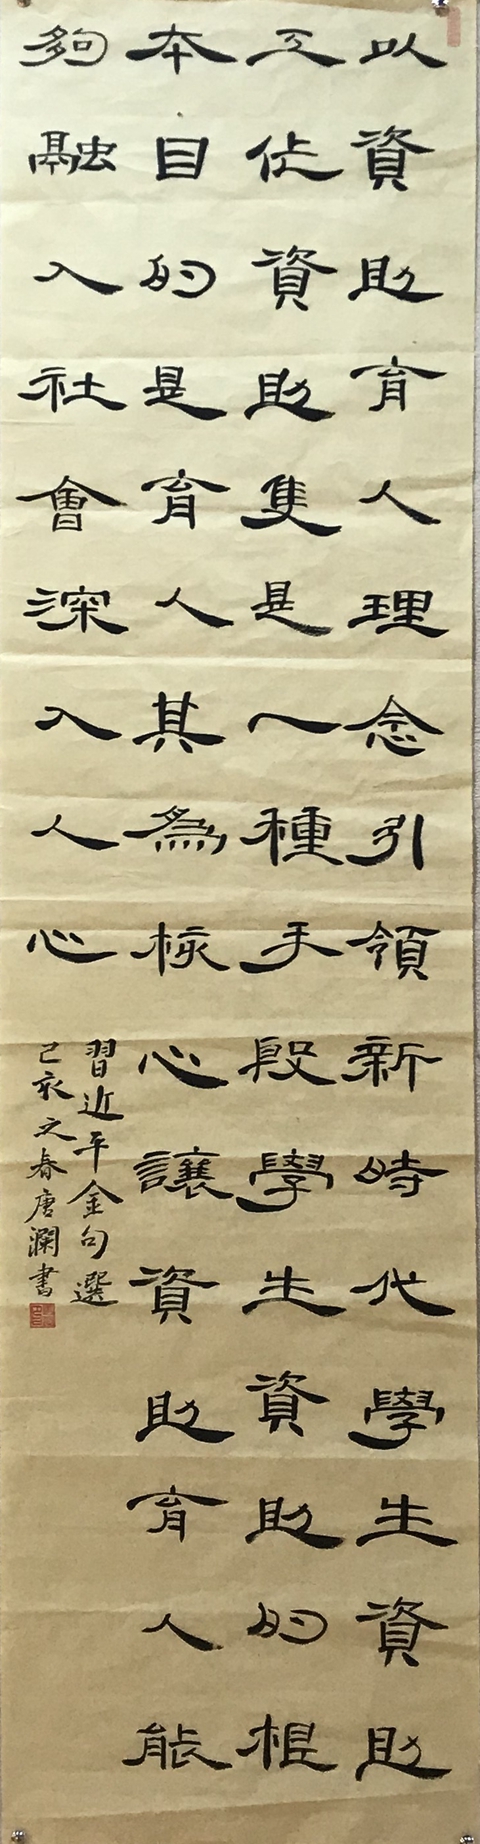 以資助育人理念引領新時代學生資助
工作資助隻是一種手段學生資助的根
本目的是育人其為核心讓資助育人能
夠融入社會深入人心
習近平金句選
己亥之春唐澜書